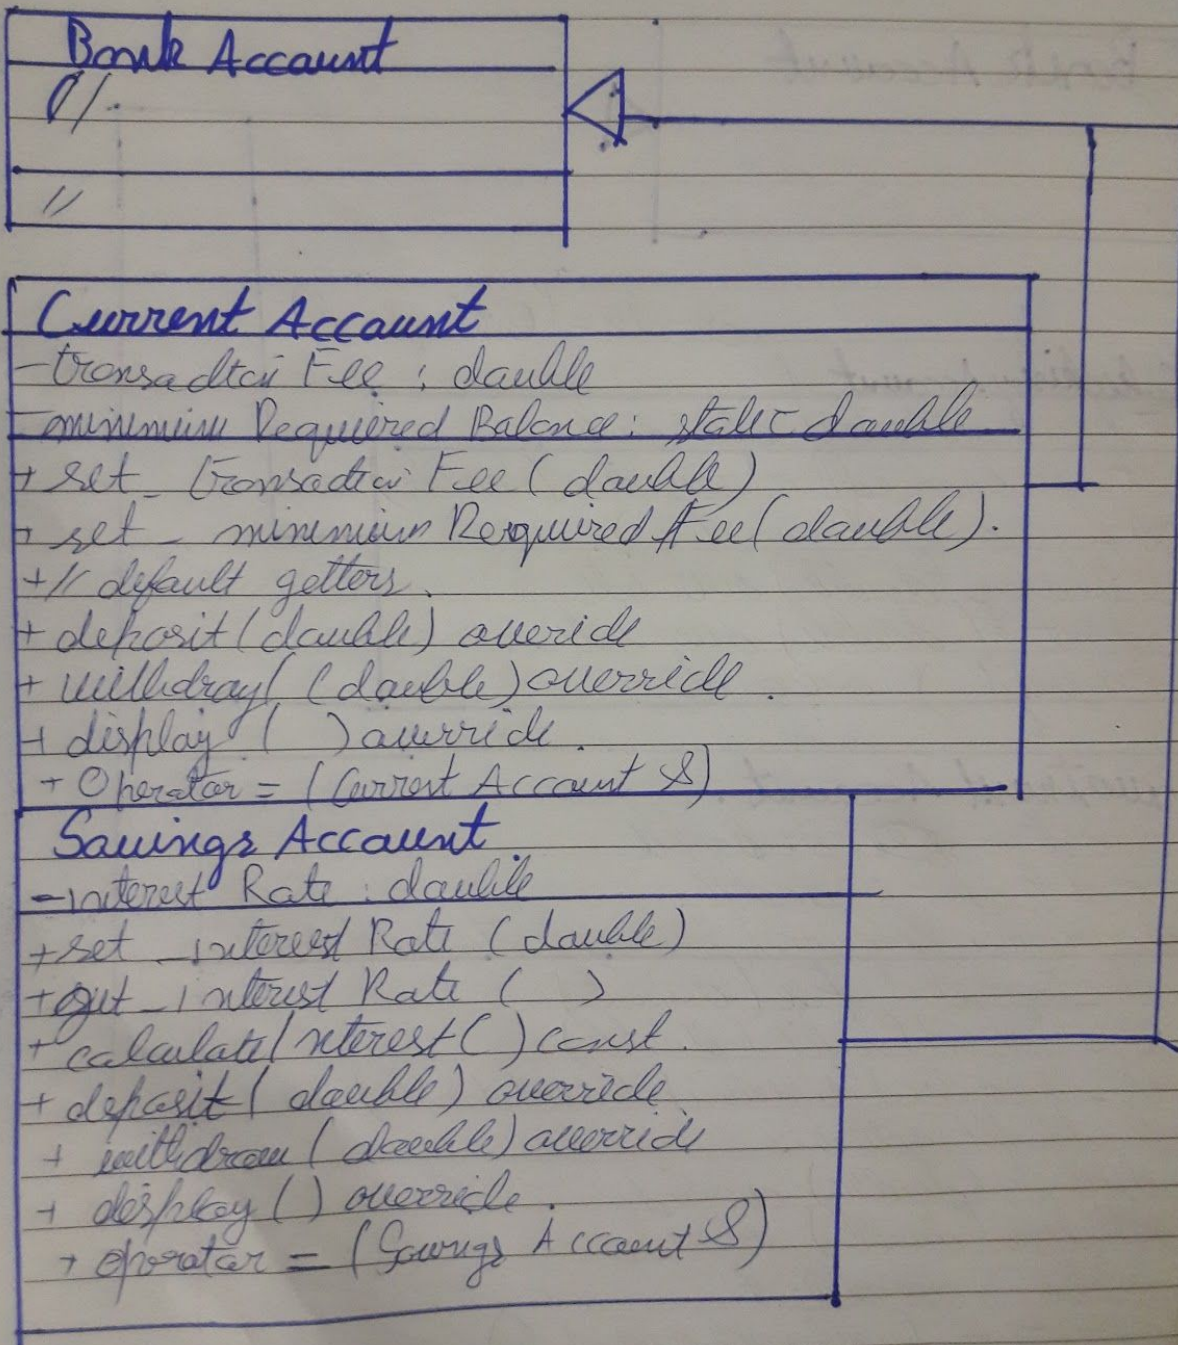 Bank Account
//
//
Current Account
- transaction Fee : double
- minimum Required Balance : static double
+ set_transaction Fee ( double )
+ set_minimum Required Fee ( double ).
+ // default getters.
+ deposit ( double ) override
+ withdraw ( ( double ) override.
+ display ( ) override.
+ Operator = ( Current Account & )
Savings Account
- interest Rate : double
+ set_interest Rate ( double )
+ get_interest Rate ( )
+ calculate Interest ( ) const.
+ deposit ( double ) override
+ withdraw ( double ) override
+ display ( ) override.
+ operator = ( Savings Account & )